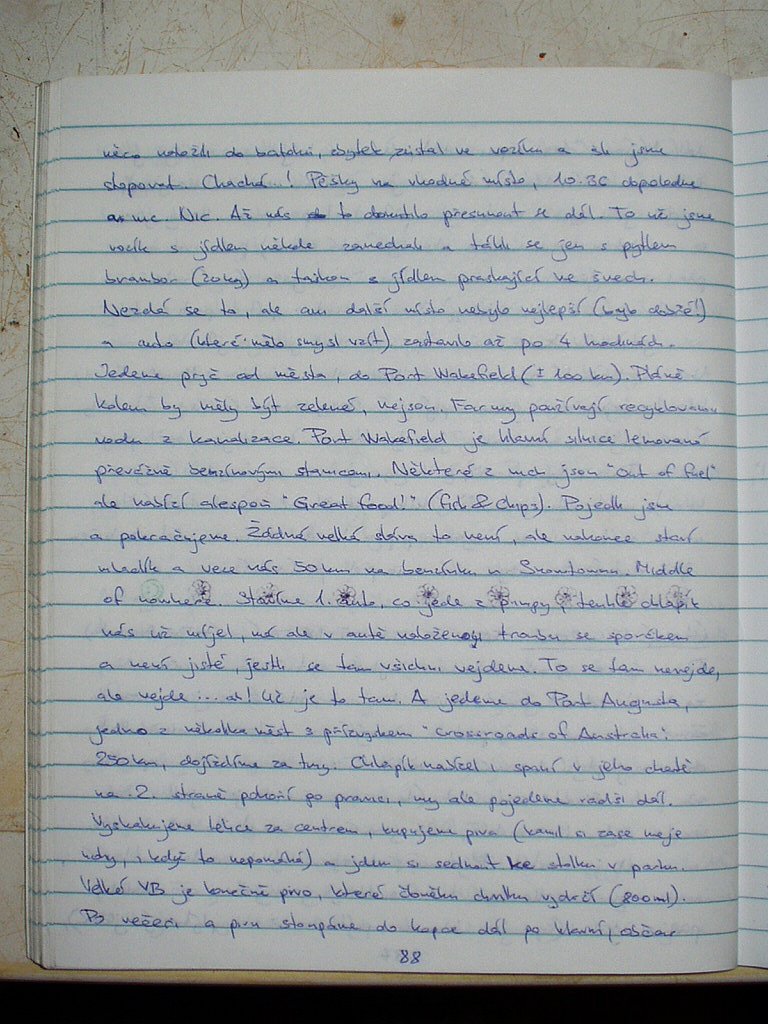 něco naložili do batohů, zbytek zůstal ve vozíku a šli jsme
stopovat. Chachá...! Pěšky na vhodné místo, 10.30 dopoledne
a nic. Nic. Až nás to donutilo přesunout se dál. To už jsme
vozík s jídlem někde zanechali a táhli se jen s pytlem
brambor (20kg) a taškou s jídlem praskající ve švech.
Nezdá se to, ale ani další místo nebylo nejlepší (bylo dobré!)
a auto (které mělo smysl vzít) zastavilo až po 4 hodinách.
Jedeme pryč od města, do Port Wakefield (± 100 km). Pláně
kolem by měly být zelené, nejsou. Farmy používají recyklovanou
vodu z kanalizace. Port Wakefield je hlavní silnice lemovaná
převážně benzínovými stanicemi. Některé z nich jsou "Out of fuel"
ale nabízí alespoň "Great food!" (fish & chips). Pojedli jsme
a pokračujeme. Žádná velká sláva to není, ale nakonec staví
mladík a veze nás 50 km na benzínku u Snowtownu. Middle
of nowhere. Stavíme 1. auto, co jede z pumpy, tenhle chlapík
nás už míjel, má ale v autě naloženou troubu se sporákem
a není jisté, jestli se tam všichni vejdeme. To se tam nevejde,
ale vejde ... a! Už je to tam. A jedeme do Port Augusta,
jedno z několika měst s přízviskem "Crossroads of Australia".
250km, dojíždíme za tmy. Chlapík nabízel i spaní v jeho chatě
na 2. straně pohoří po pravici, my ale pojedeme radši dál.
Vyskakujeme lehce za centrem, kupujeme piva (Kamil si zase myje
nohy, i když to nepomáhá) a jdem si sednout ke stolku v parku.
Velké VB je konečně pivo, které člověku chvilku vydrží (800ml).
Po večeři a pivu stoupáme do kopce dál po hlavní, občas
88